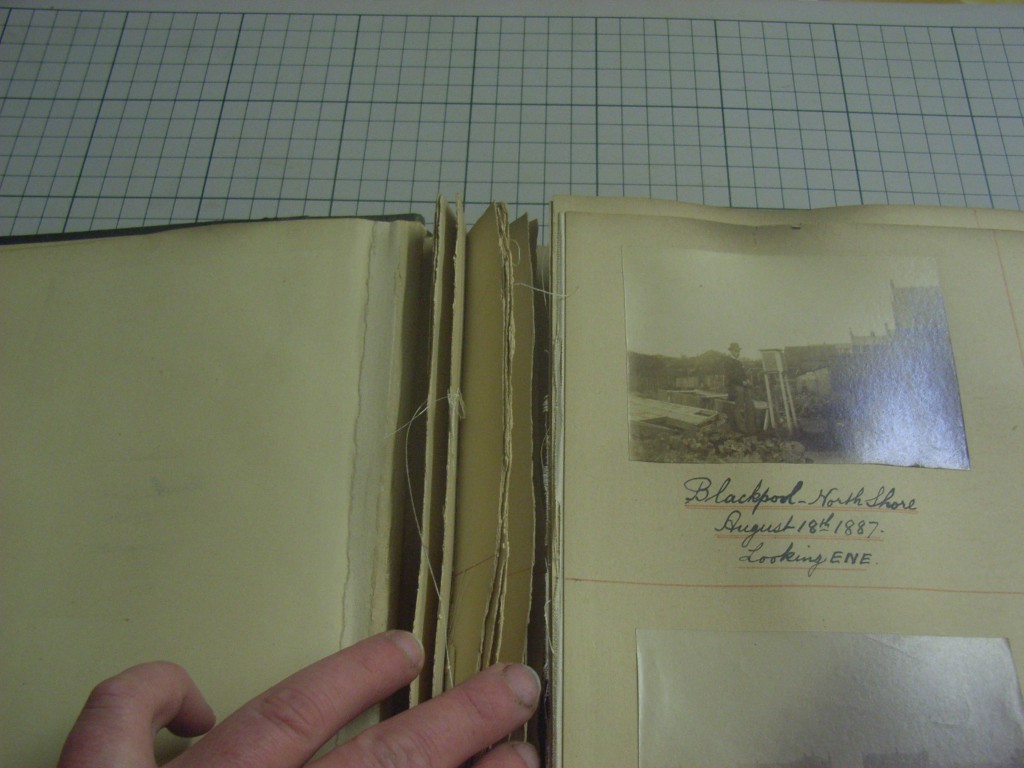 Blackpool - North Shore
August 18th 1887.
Looking ENE.